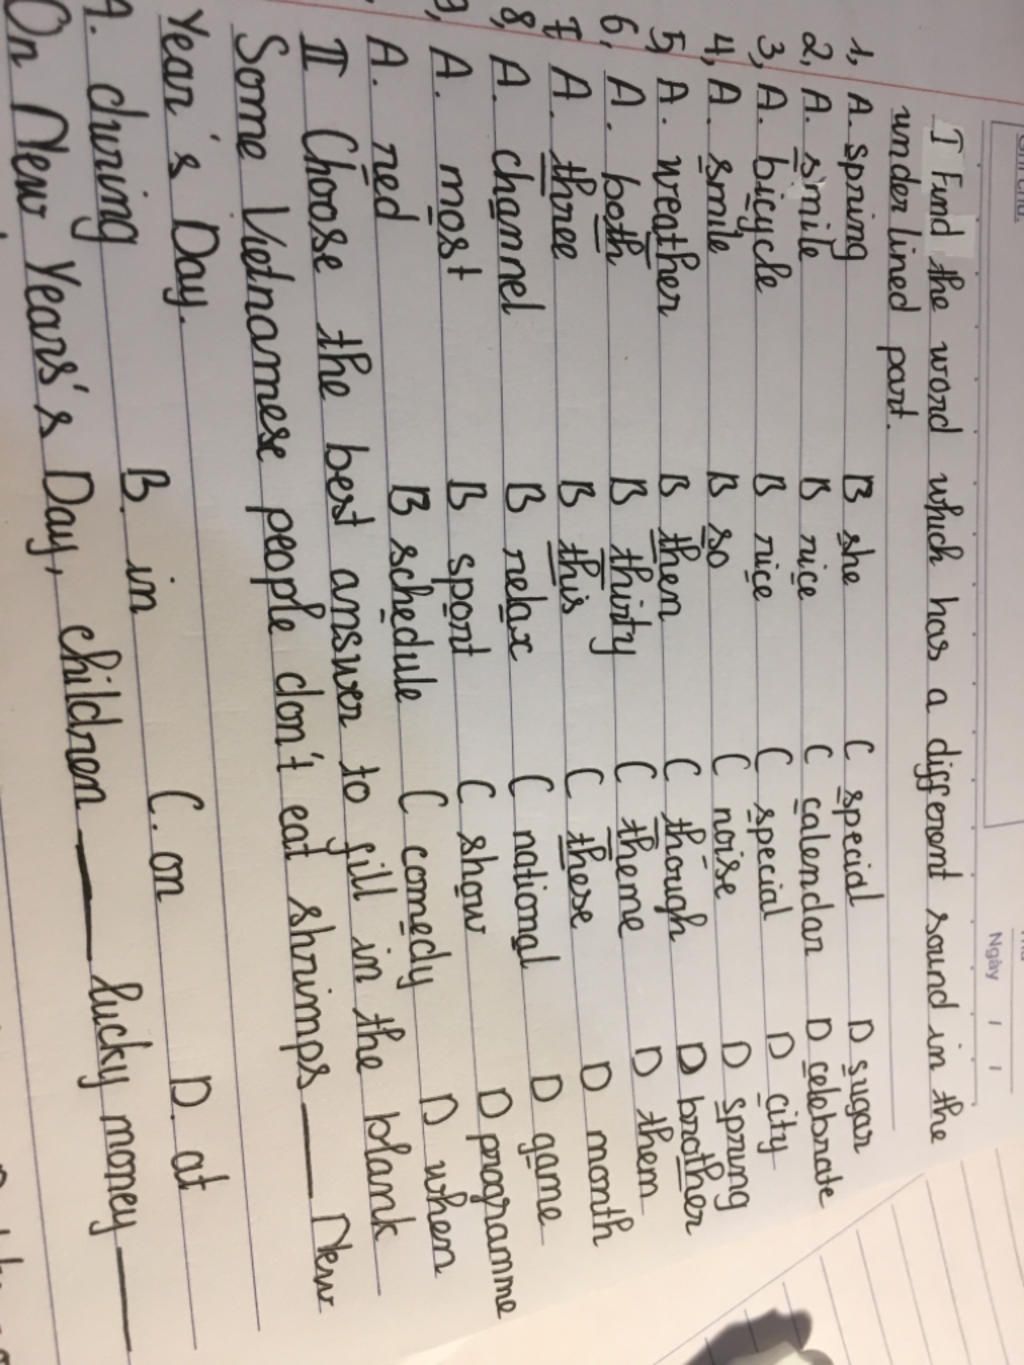 Ngày / /
I Find the word which has a different sound in the
under lined part.
1, A. spring B she C special D sugar
2, A. smile B rice C calendar D celebrate
3, A. bicycle B rice C special D city
4, A. smile B so C noise D spring
5, A. weather B then C though D brother
6, A. both B thirty C theme D them
7 A. three B this C these D month
8, A. channel B relax C national D game
9, A. most B sport C show D programme
A. red B schedule C comedy D when
II Choose the best answer to fill in the blank
Some Vietnamese people don't eat shrimps ___ New
Year's Day.
A. during B. in C. on D. at
On New Years's Day, children ___ lucky money ___